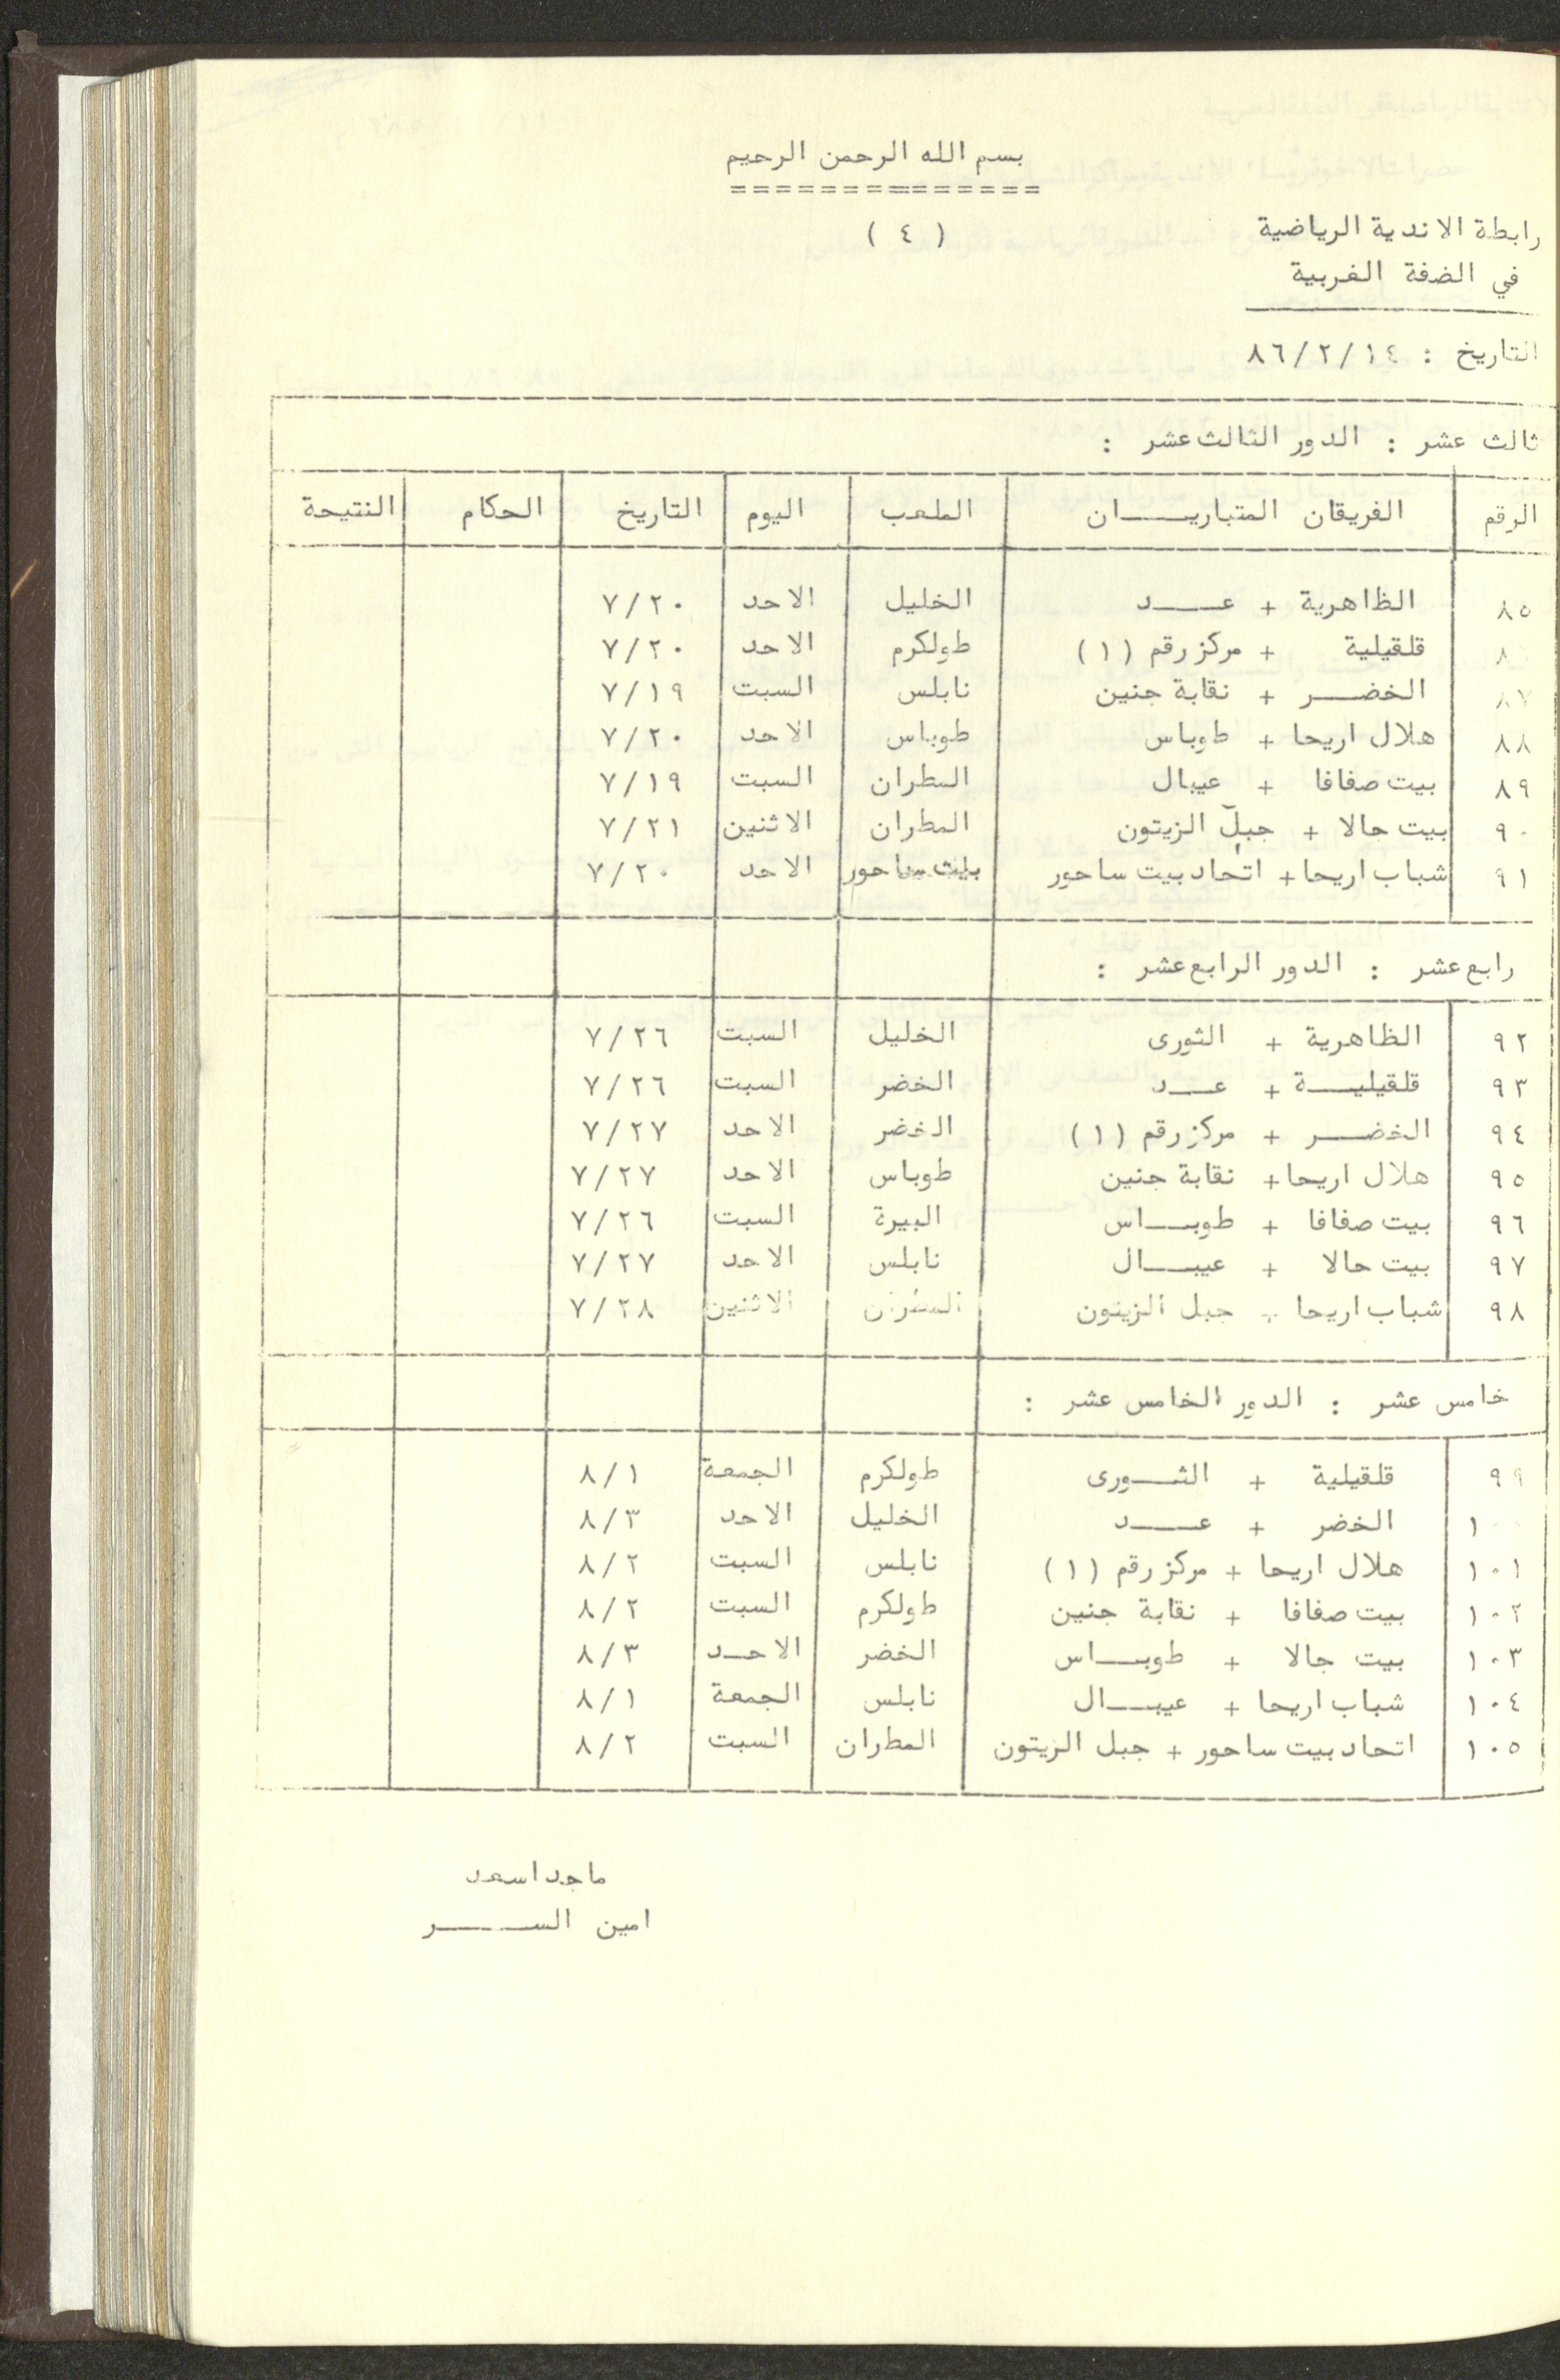 بسم الله الرحمن الرحيم
==============
رابطة الاندية الرياضية
( ٤ )
في الضفة الغربية
التاريخ : ٨٦/٢/١٤
ثالث عشر : الدور الثالث عشر :
الرقم الفريقان المتباريـــان الملعب اليوم التاريخ الحكام النتيجة
٨٥ الظاهرية + عــــد الخليل الاحد ٧/٢٠
٨٦ قلقيلية + مركز رقم (١) طولكرم الاحد ٧/٢٠
٨٧ الخضــر + نقابة جنين نابلس السبت ٧/١٩
٨٨ هلال اريحا + طوباس طوباس الاحد ٧/٢٠
٨٩ بيت صفافا + عيبال المطران السبت ٧/١٩
٩٠ بيت جالا + جبل الزيتون المطران الاثنين ٧/٢١
٩١ شباب اريحا + اتحاد بيت ساحور بيت ساحور الاحد ٧/٢٠
رابع عشر : الدور الرابع عشر :
٩٢ الظاهرية + الثورى الخليل السبت ٧/٢٦
٩٣ قلقيليــة + عـــد الخضر السبت ٧/٢٦
٩٤ الخضــر + مركز رقم (١) الخضر الاحد ٧/٢٧
٩٥ هلال اريحا + نقابة جنين طوباس الاحد ٧/٢٧
٩٦ بيت صفافا + طوبــاس البيرة السبت ٧/٢٦
٩٧ بيت جالا + عيبــال نابلس الاحد ٧/٢٧
٩٨ شباب اريحا + جبل الزيتون المطران الاثنين ٧/٢٨
خامس عشر : الدور الخامس عشر :
٩٩ قلقيلية + الثــورى طولكرم الجمعة ٨/١
١٠٠ الخضر + عــــد الخليل الاحد ٨/٣
١٠١ هلال اريحا + مركز رقم (١) نابلس السبت ٨/٢
١٠٢ بيت صفافا + نقابة جنين طولكرم السبت ٨/٢
١٠٣ بيت جالا + طوبــاس الخضر الاحــد ٨/٣
١٠٤ شباب اريحا + عيبــال نابلس الجمعة ٨/١
١٠٥ اتحاد بيت ساحور + جبل الزيتون المطران السبت ٨/٢
ماجد اسعد
امين الســـر